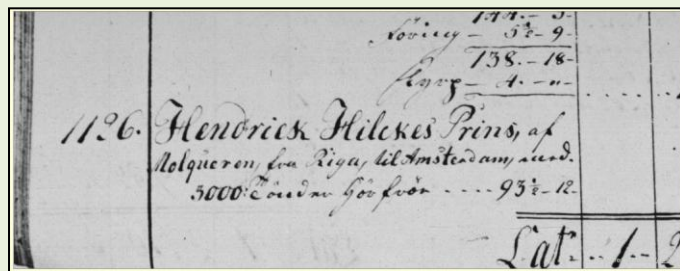 144.- 3-
Föring - 5½- 9-
138.- 18-
Fyrp - 4.- "-
1126. Hendrick Hilckes Prins, af
Molqueren, fra Riga, til Amsterdam, med.
3000: Tönder Hörfröe .... 93½- 12.
Lat .. 1.. 2